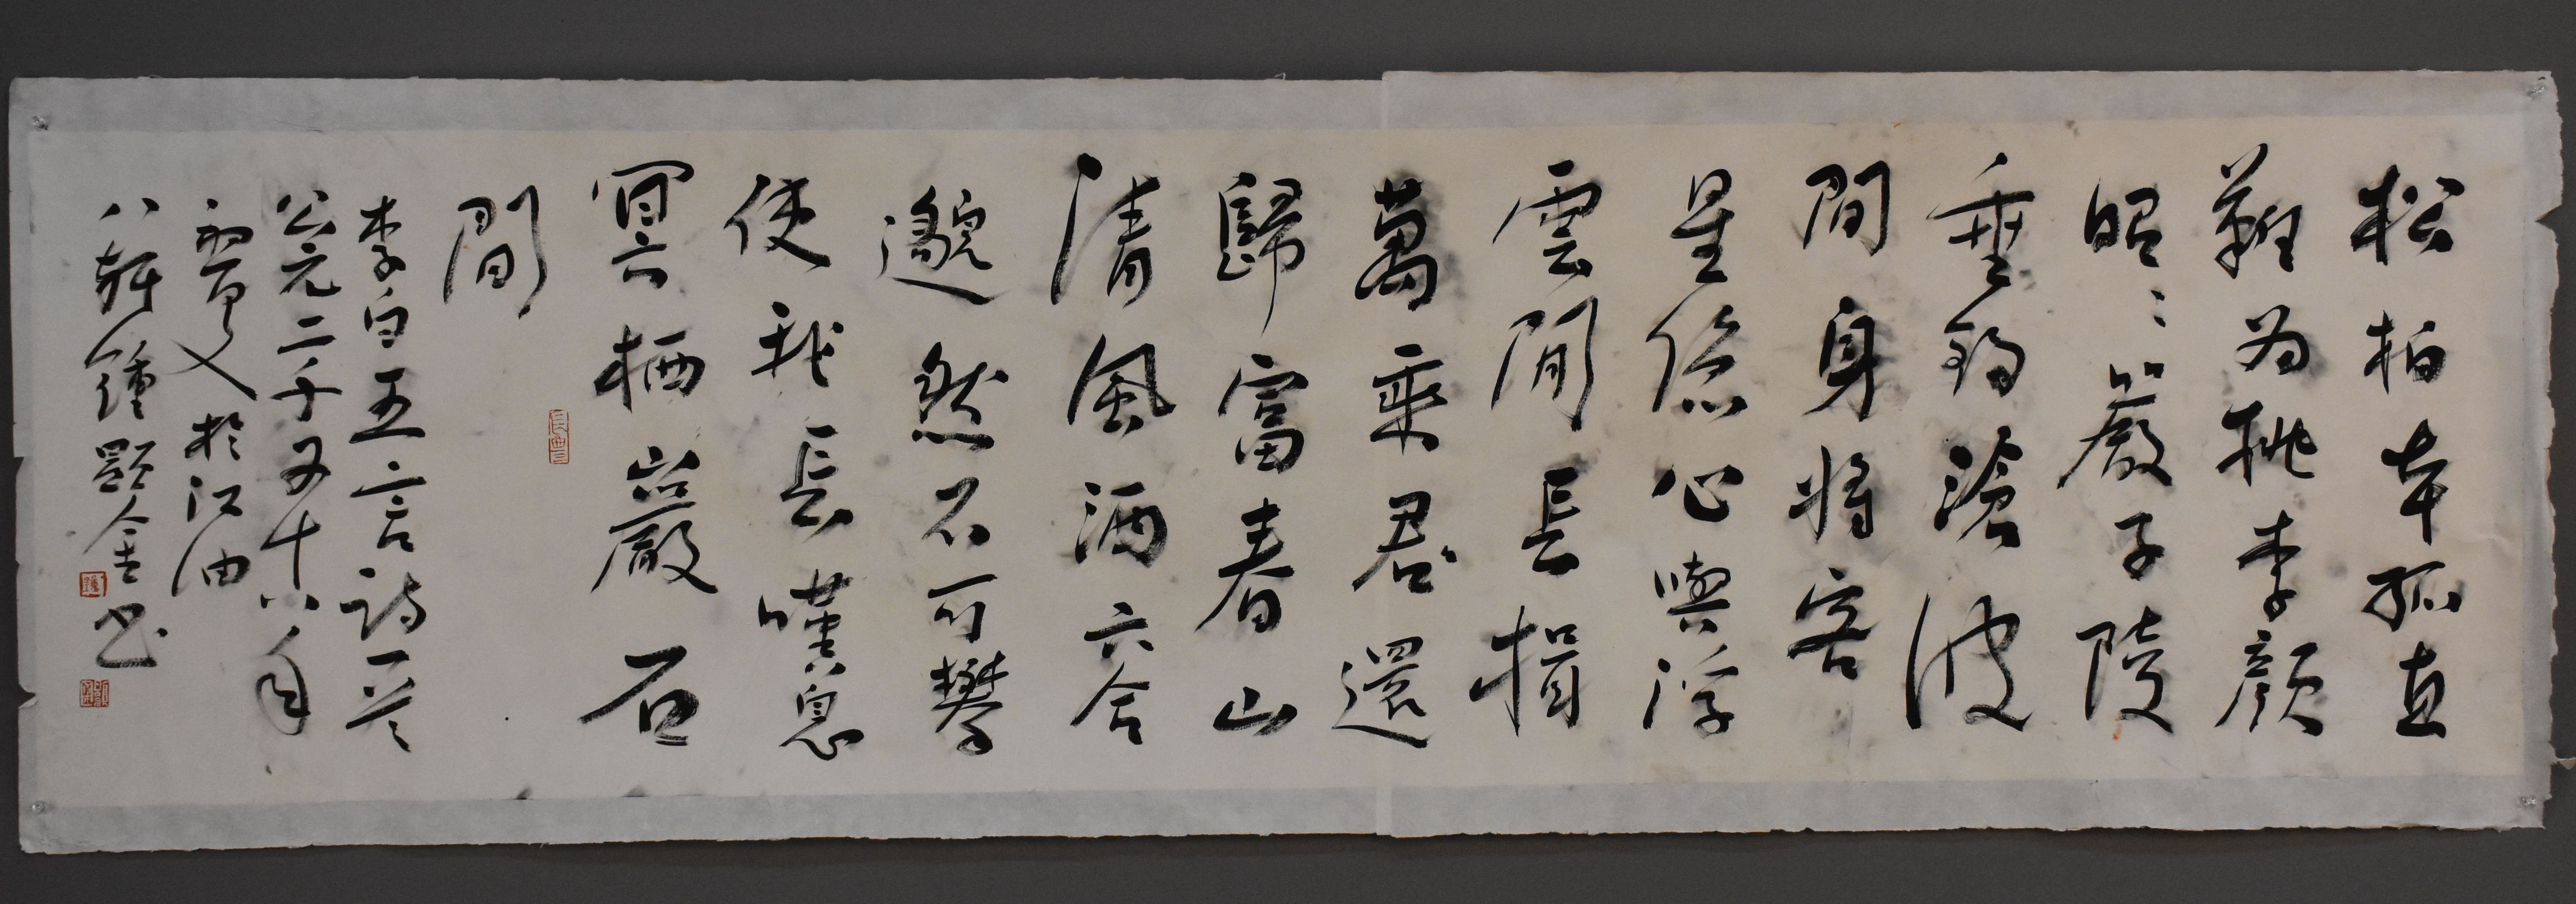 松柏本孤直
難為桃李顏
昭〻嚴子陵
垂釣滄波
間身將客
星隱心與浮
雲閒長揖
萬乘君還
歸富春山
清風洒六合
邈然不可攀
使我長嘆息
冥栖巖石
間
李白五言詩一首
公元二千又十八年
於江油
鍾顯金书